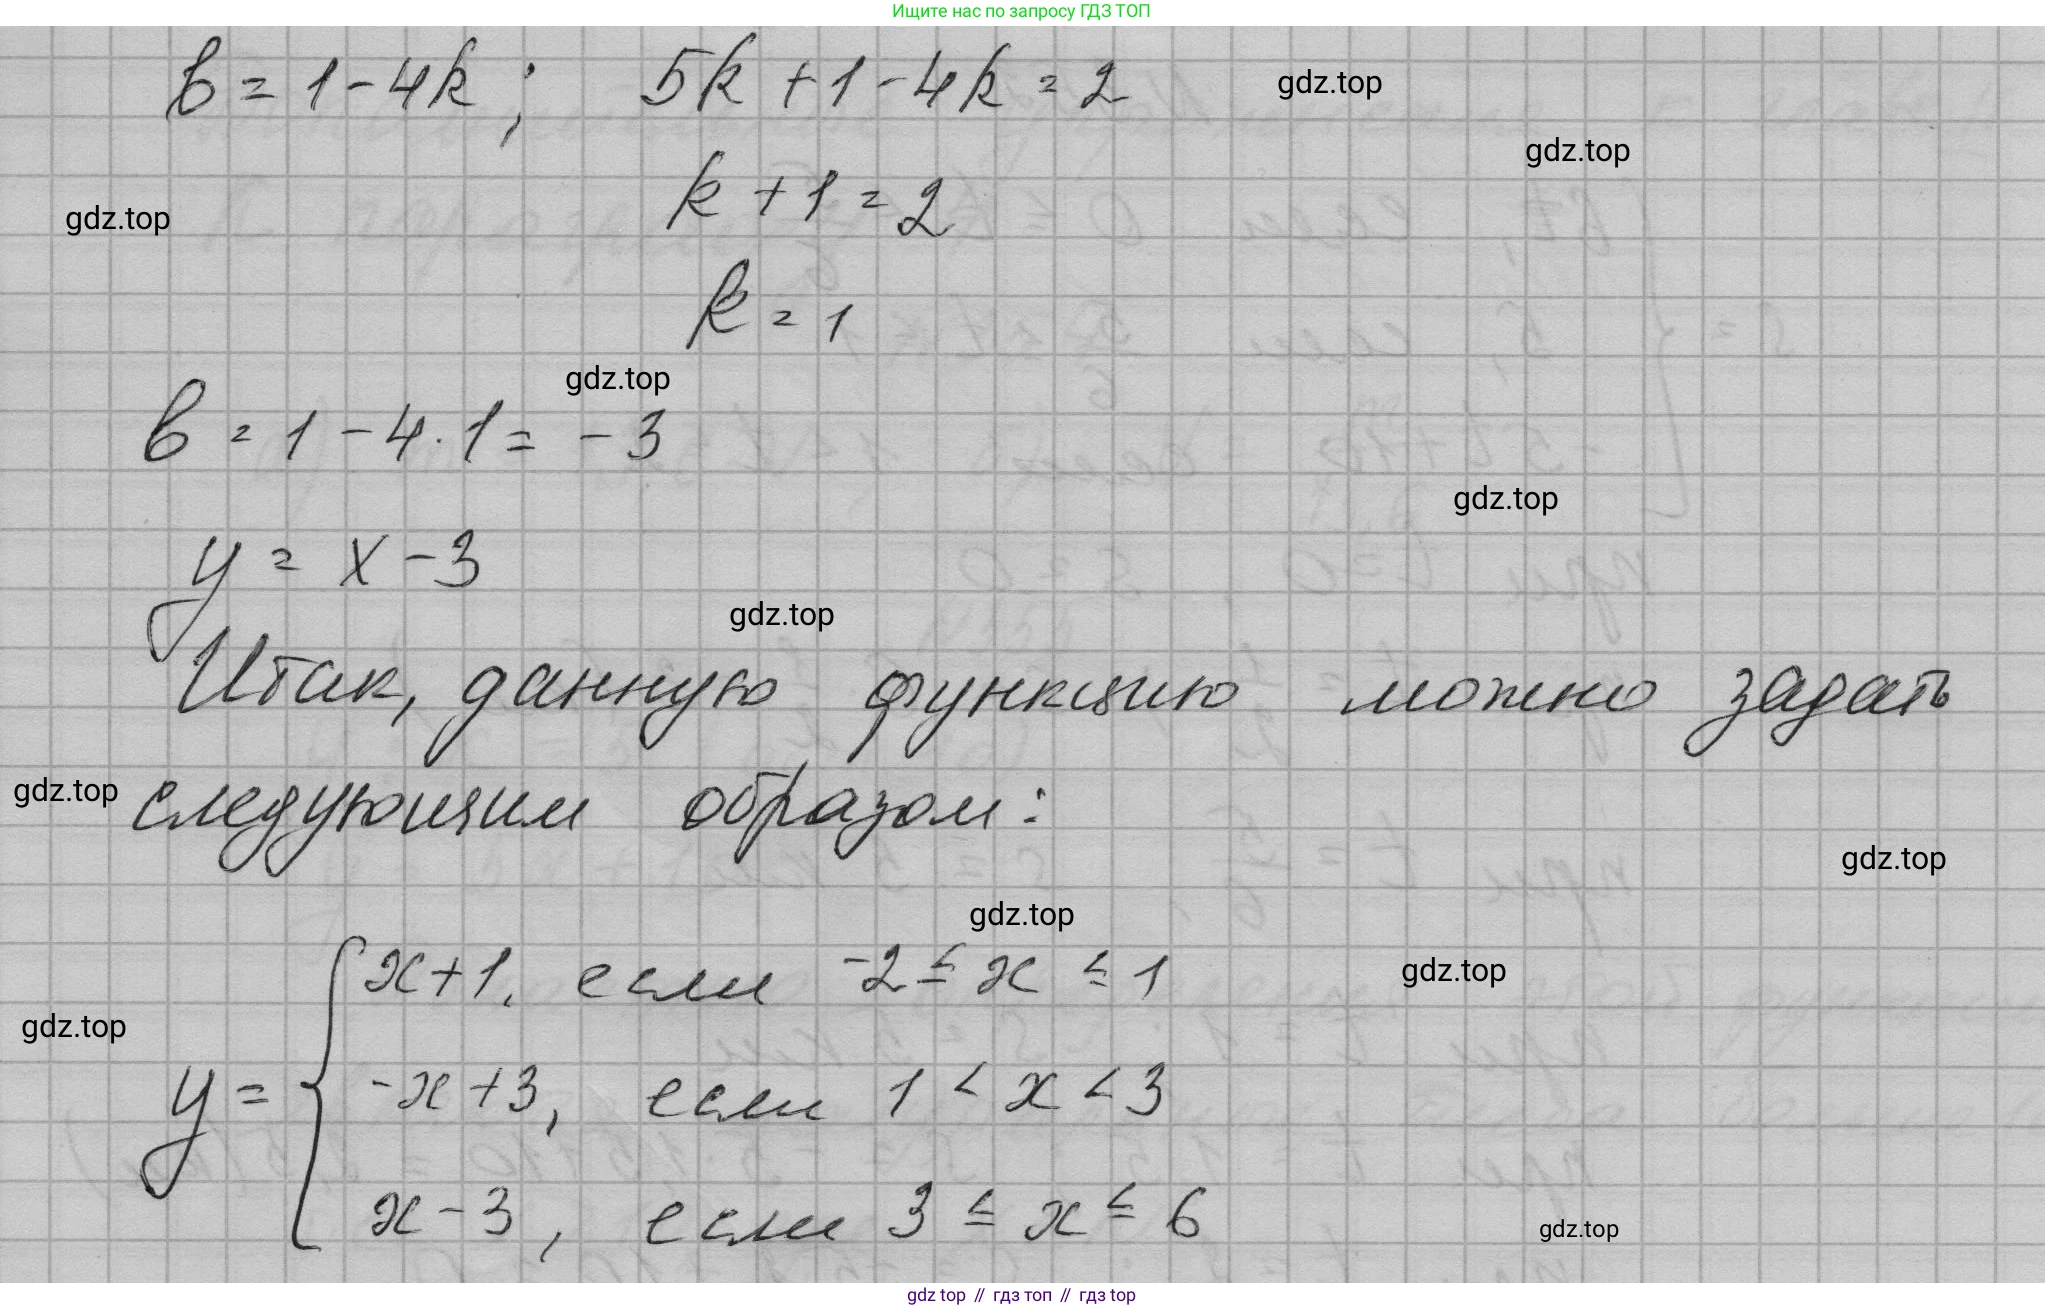 Ищите нас по запросу ГДЗ ТОП
b = 1 - 4k; 5k + 1 - 4k = 2
gdz.top
gdz.top
k + 1 = 2
gdz.top
k = 1
gdz.top
b = 1 - 4 · 1 = - 3
gdz.top
y = x - 3
gdz.top
Итак, данную функцию можно задать
gdz.top
следующим образом:
gdz.top
gdz.top
x + 1, если -2 ≤ x ≤ 1
gdz.top
gdz.top
y = { -x + 3, если 1 < x < 3
x - 3, если 3 ≤ x ≤ 6
gdz.top
gdz top // гдз топ // гдз top